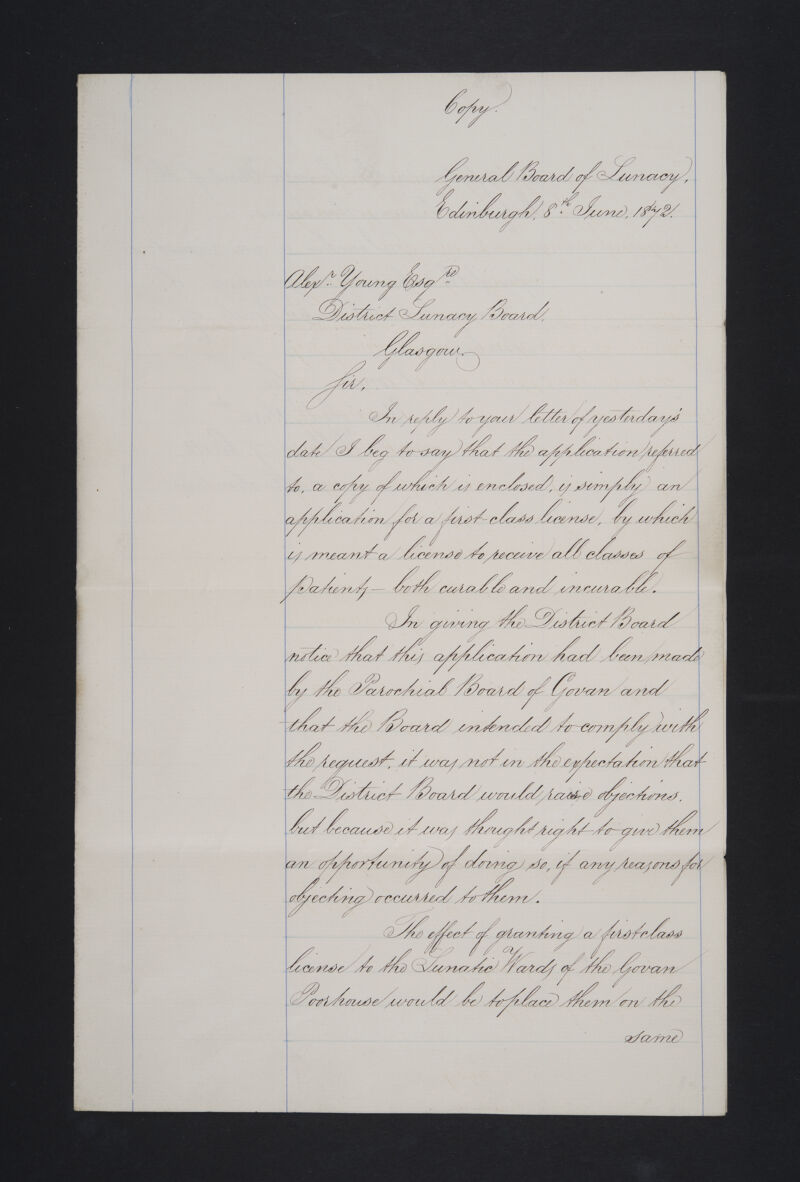 Copy.
General Board of Lunacy,
Edinburgh, 8th June, 1872.
Alexr. Young Esqre
District Lunacy Board,
Glasgow.
Sir,
In reply to your letter of yesterday's
date I beg to say that the application referred
to, a copy of which is enclosed, is simply an
application for a first-class license, by which
is meant a license to receive all classes of
patients – both curable and incurable.
In giving the District Board
notice that this application had been made
by the Parochial Board of Govan and
that the Board intended to comply with
the request, it was not in the expectation that
the District Board would raise objections,
but because it was thought right to give them
an opportunity of doing so, if any reasons for
objecting occurred to them.
The effect of granting a first class
license to the Lunatic Wards of the Govan
Poorhouse would be to place them on the
same